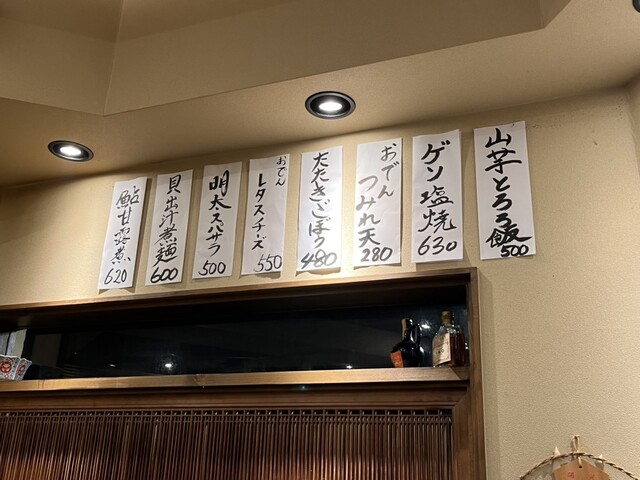 山芋とろろ飯
500
ゲソ塩焼
630
おでん
つみれ天
280
たたきごぼう
480
おでん
レタスチーズ
550
明太スパサラ
500
貝出汁煮麺
600
鮎甘露煮
620